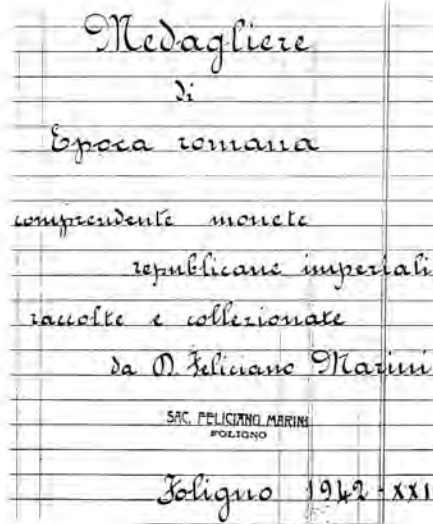 Medagliere
di
Epoca romana
comprendente monete
republicane imperiali
raccolte e collezionate
da D. Feliciano Marini
SAC. FELICIANO MARINI
FOLIGNO
Foligno 1942-XXI